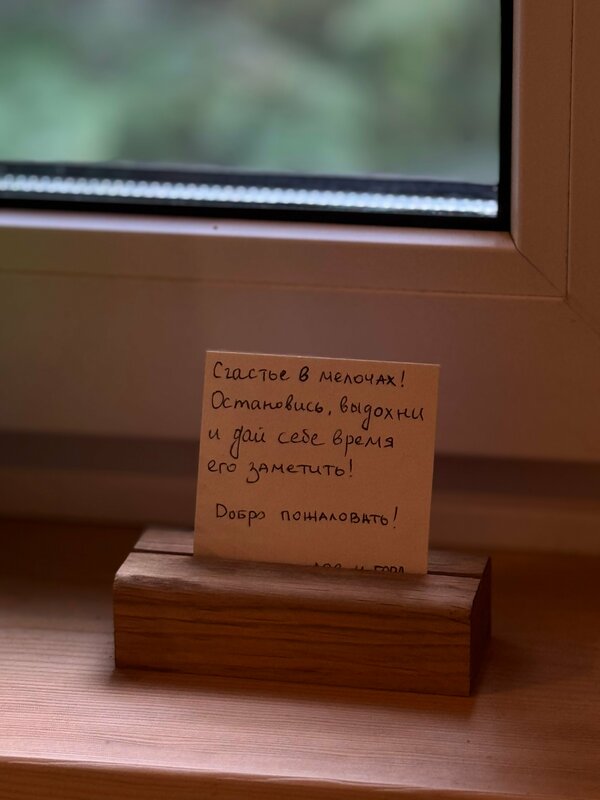 Счастье в мелочах!
Остановись, выдохни
и дай себе время
его заметить!
Добро пожаловать!